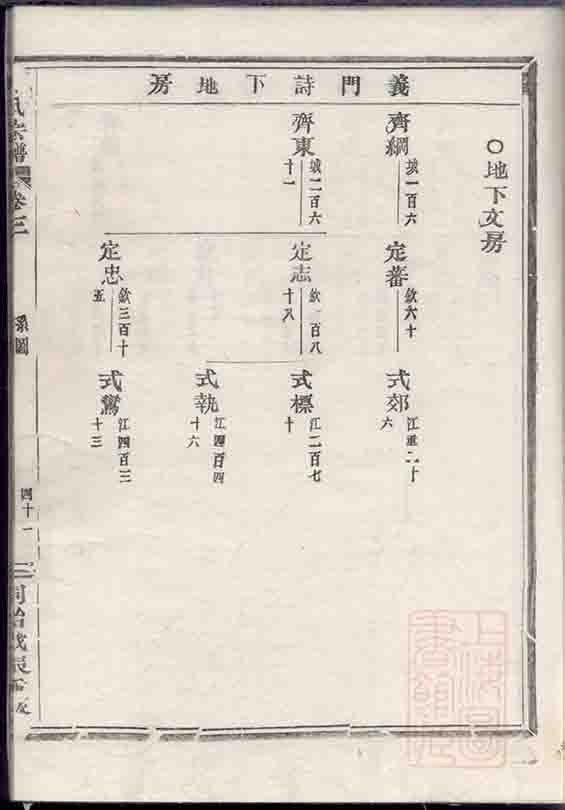 義門詩下地房
〇地下文房
齊綱
城一百六
定蕃
欽六十
式郊
江重二十
六
齊東
城二百六
十一
定志
欽一百八
十八
式標
江二百七
十
式執
江四百四
十六
定忠
欽三百十
五
式鸞
江四百三
十三
氏宗譜
卷三
系圖
四十一
同治戊辰
上海圖書館藏